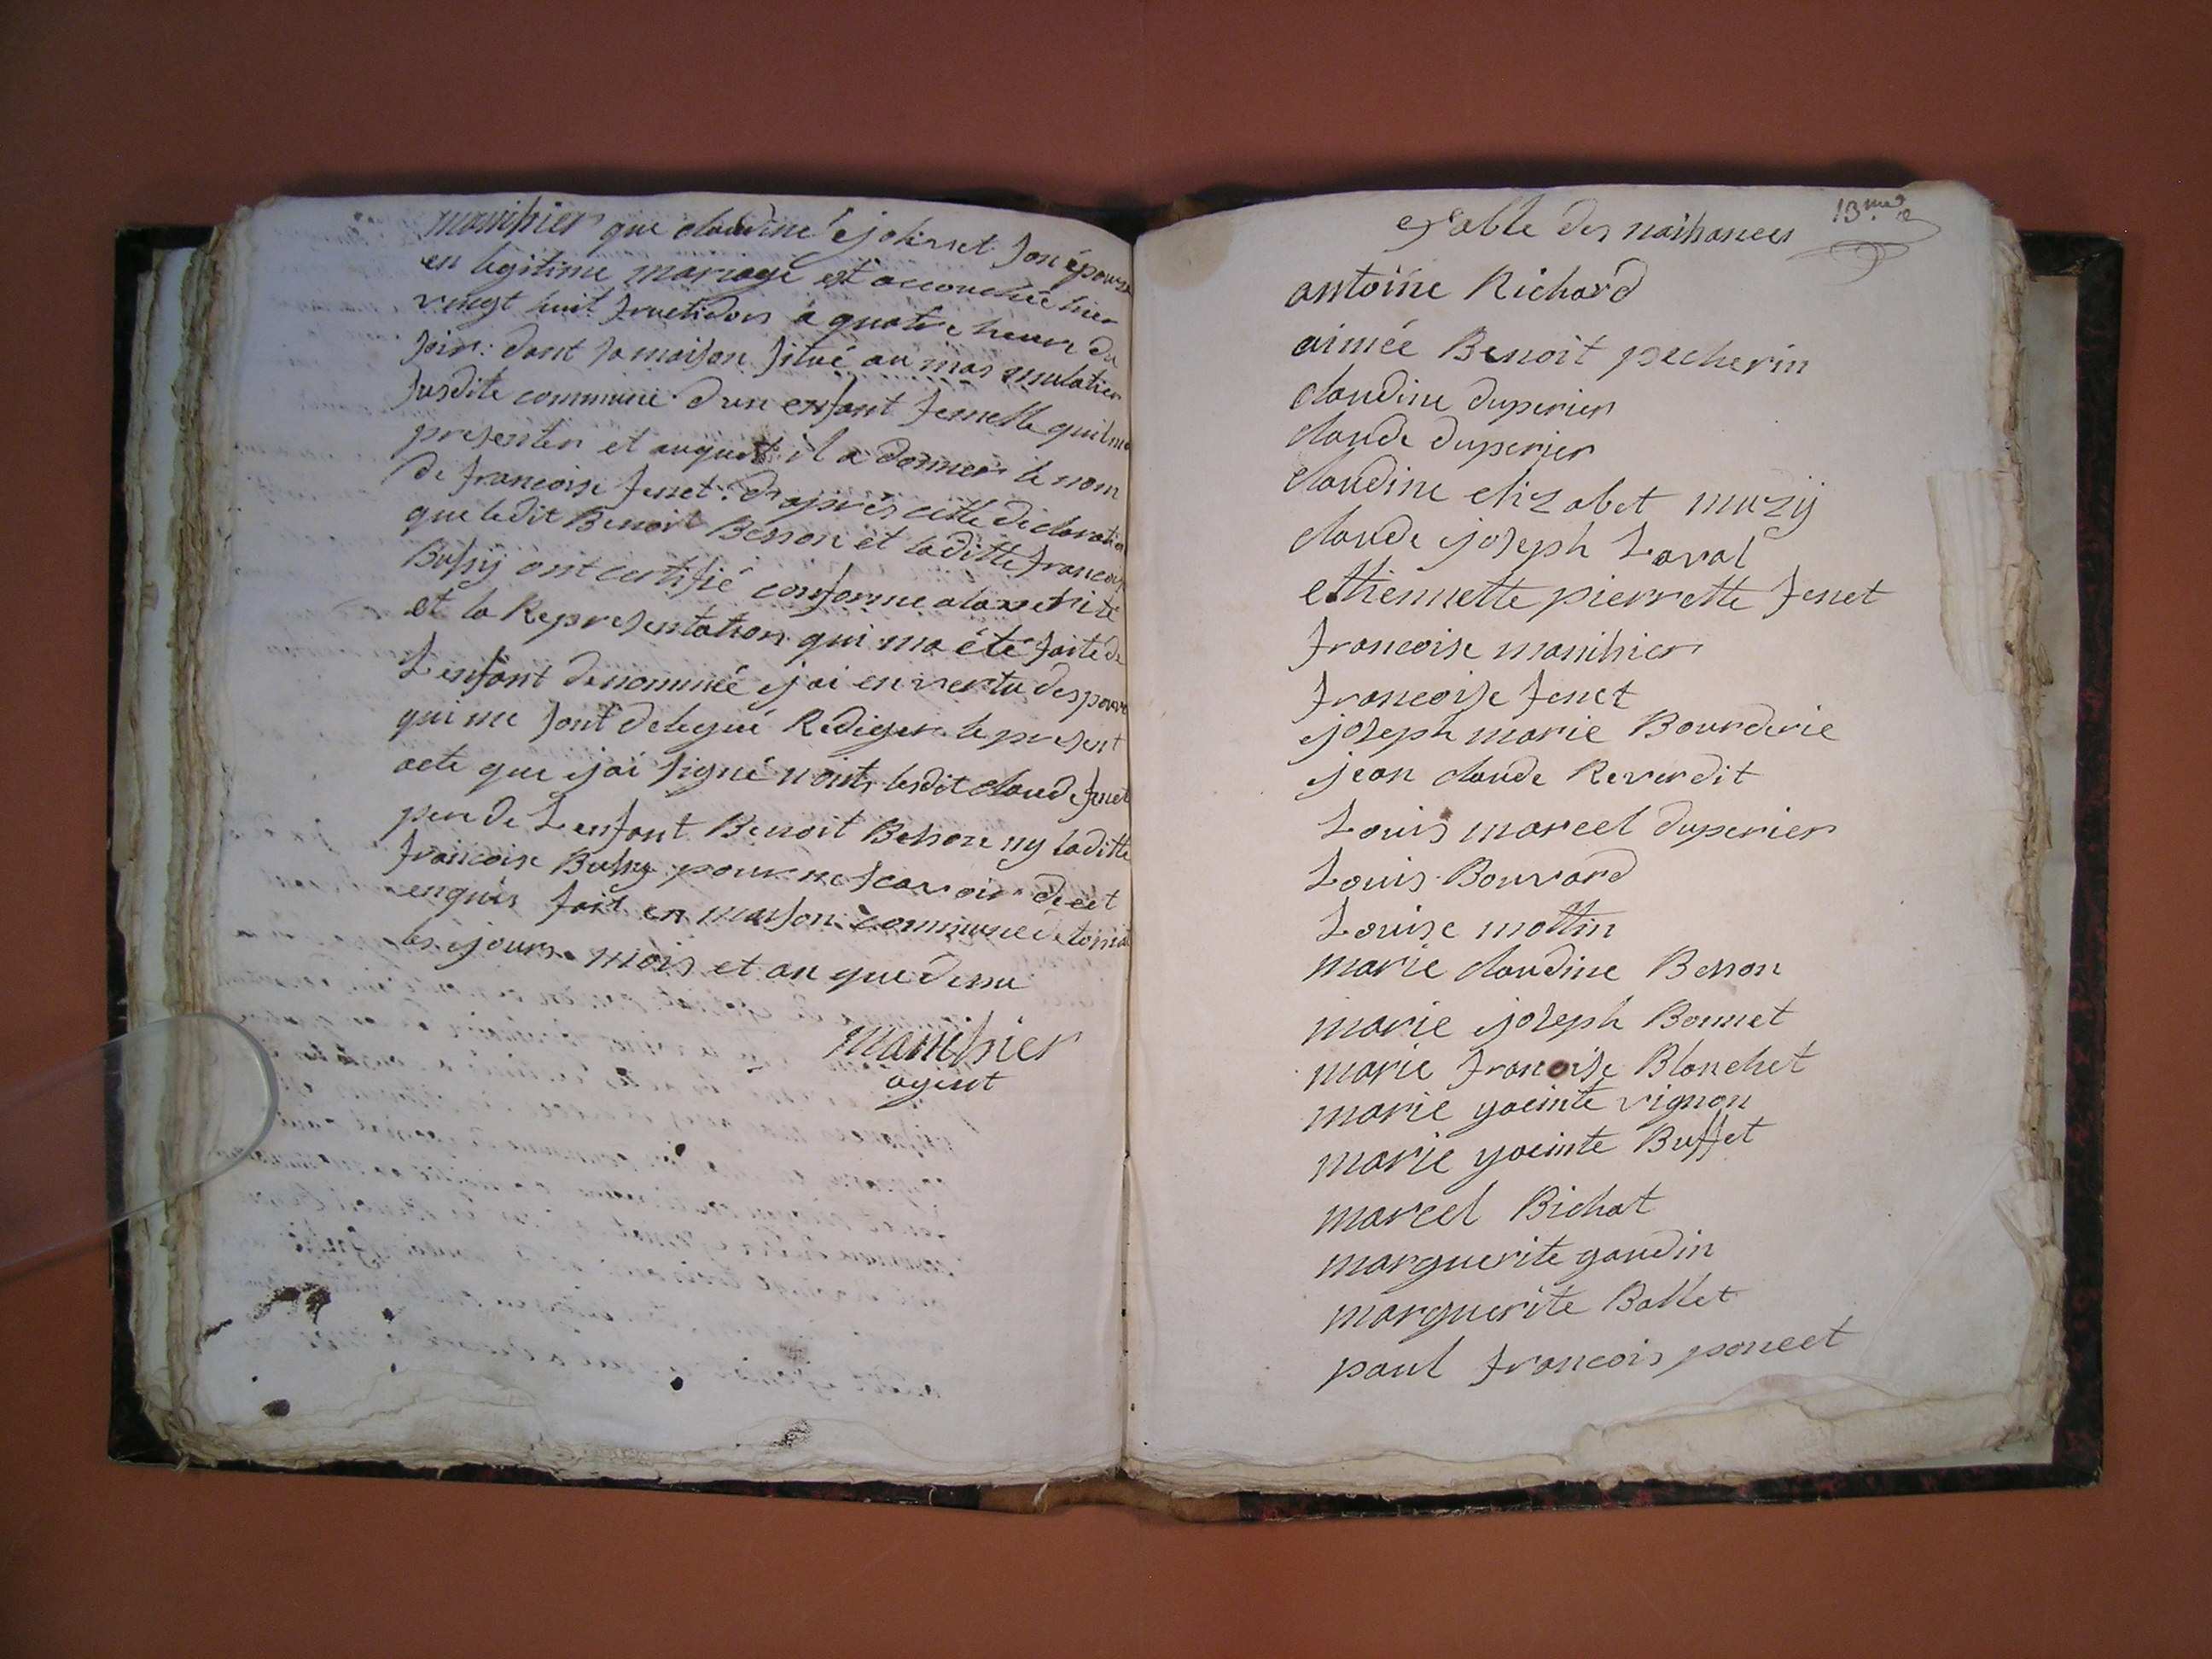 manihier que claudine jolinet son épouse
en legitime mariage est accouchée hier
vingt huit fructidor à quatre heure du
soir: dant sa maison situé au mas mulatier
susdite commune d'un enfant femelle quil ma
presenter et auquel il a donner le nom
de francoise fenet: d'après cette declaration
que ledit Benoit Besson et laditte francois
Bussy ont certifié conforme a la verité
et la Representation qui ma été faite de
L'enfant denommée jai en vertu des pouvo
qui me sont delegué Rediger le present
acte que jai signé nonts lesdit claude fenet
per de L'enfant Benoit Besson ny laditte
francoise Bussy pour ne scavoir de cet
enquis fait en maison commune de
les jours mois et an que dessu
manihier
agent
13.me
Table des naissances
antoine Richard
aimée Benoit pecherin
claudine duperier
claude duperier
claudine elizabet muzÿ
claude joseph Laval
ethiennette pierrette fenet
francoise manihier
francoise fenet
joseph marie Bourderie
jean claude Reverdit
Louis marcel duperier
Louis Bouvard
Louise mottin
marie claudine Besson
marie joseph Bonnet
marie francoise Blanchet
marie yacinte vignon
marie yacinte Buffet
marcel Bichat
marguerite gaudin
marguerite Ballet
paul francois poncet